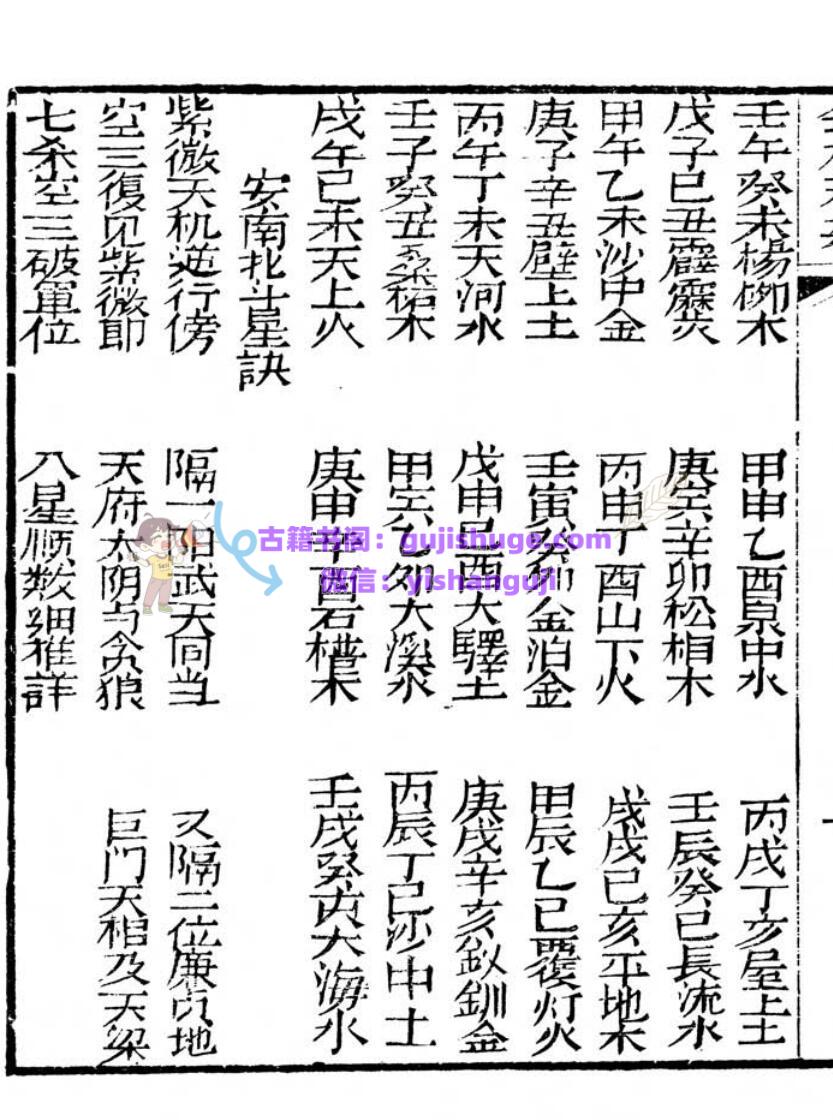 壬午癸未楊柳木 甲申乙酉泉中水 丙戌丁亥屋上土
戊子己丑霹靂火 庚寅辛卯松栢木 壬辰癸巳長流水
甲午乙未沙中金 丙申丁酉山下火 戊戌己亥平地木
庚子辛丑壁上土 壬寅癸卯金泊金 甲辰乙巳覆灯火
丙午丁未天河水 戊申己酉大驛土 庚戌辛亥釵釧金
壬子癸丑桑柘木 甲寅乙卯大溪水 丙辰丁巳沙中土
戊午己未天上火 庚申辛酉石榴木 壬戌癸亥大海水
安南北斗星訣
紫微天机逆行傍 隔一阳武天同当 又隔二位廉贞地
空三復见紫微郎 天府太阴与贪狼 巨门天相及天梁
七杀空三破軍位 八星順数細推詳
古籍书阁：gujishuge.com
微信：yishanguji